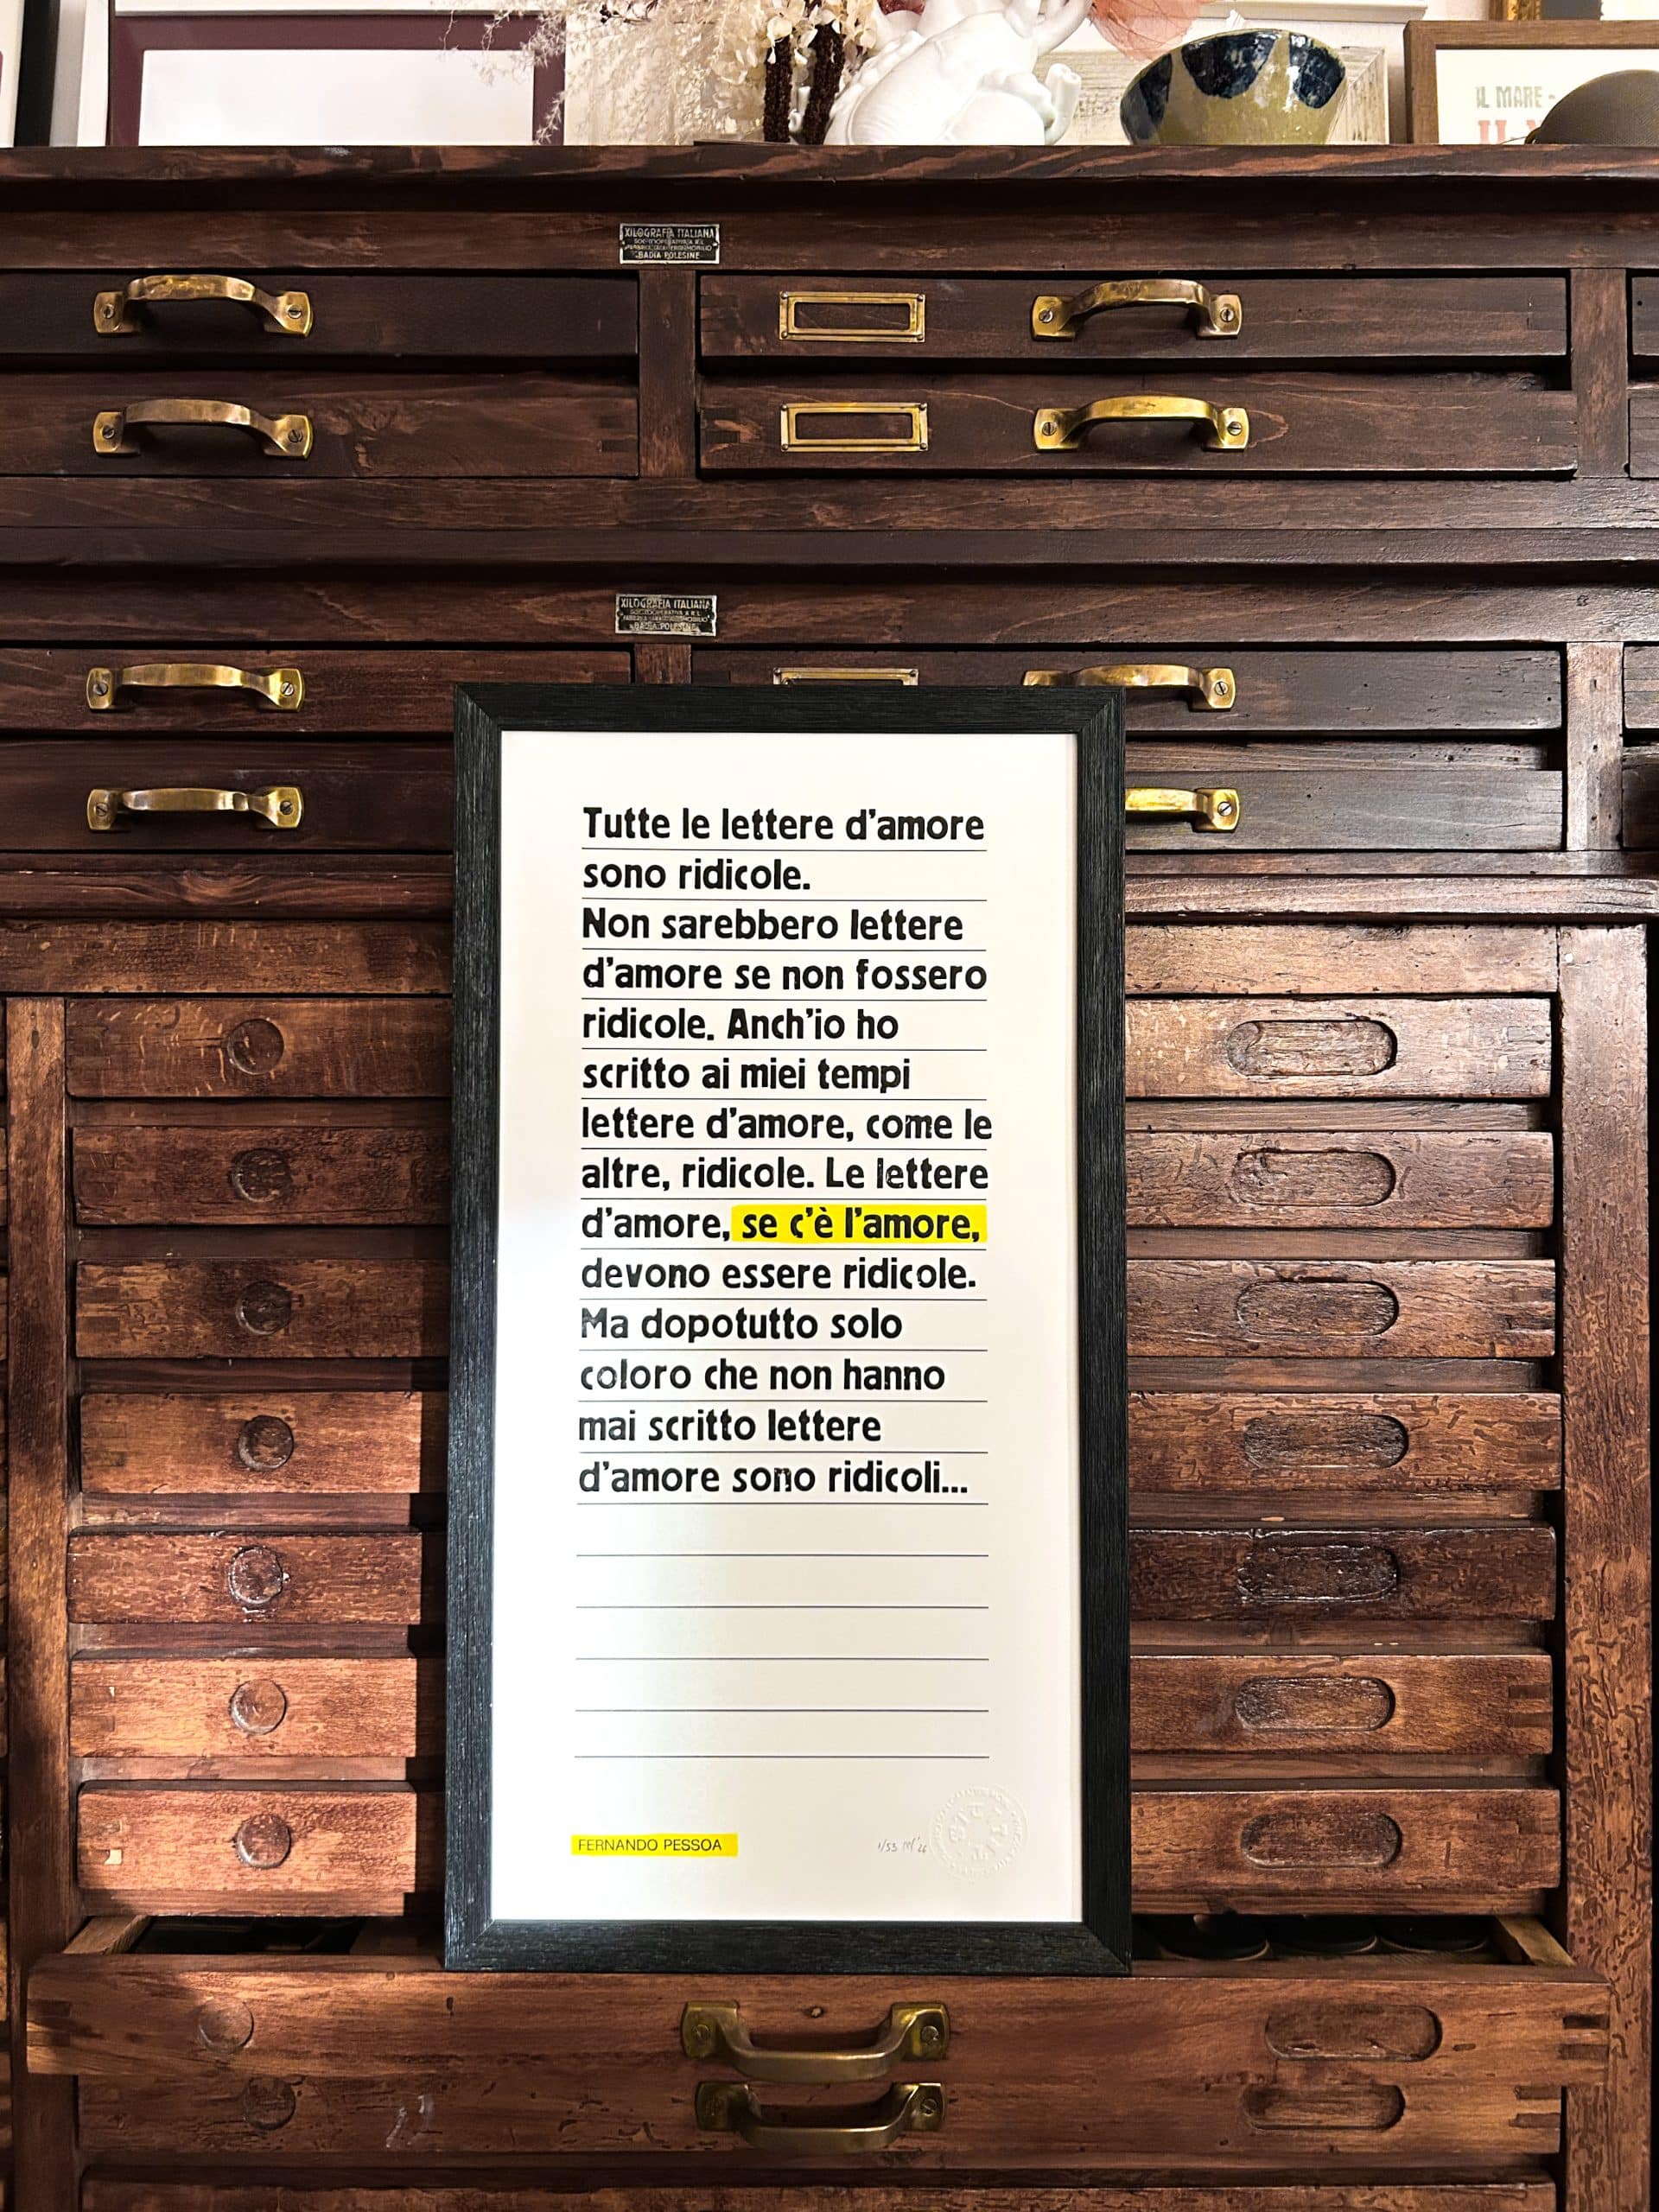 IL MARE -
XILOGRAFIA ITALIANA
BADIA POLESINE
XILOGRAFIA ITALIANA
BADIA POLESINE
Tutte le lettere d'amore
sono ridicole.
Non sarebbero lettere
d'amore se non fossero
ridicole. Anch'io ho
scritto ai miei tempi
lettere d'amore, come le
altre, ridicole. Le lettere
d'amore, se c'è l'amore,
devono essere ridicole.
Ma dopotutto solo
coloro che non hanno
mai scritto lettere
d'amore sono ridicoli...
FERNANDO PESSOA
1/53